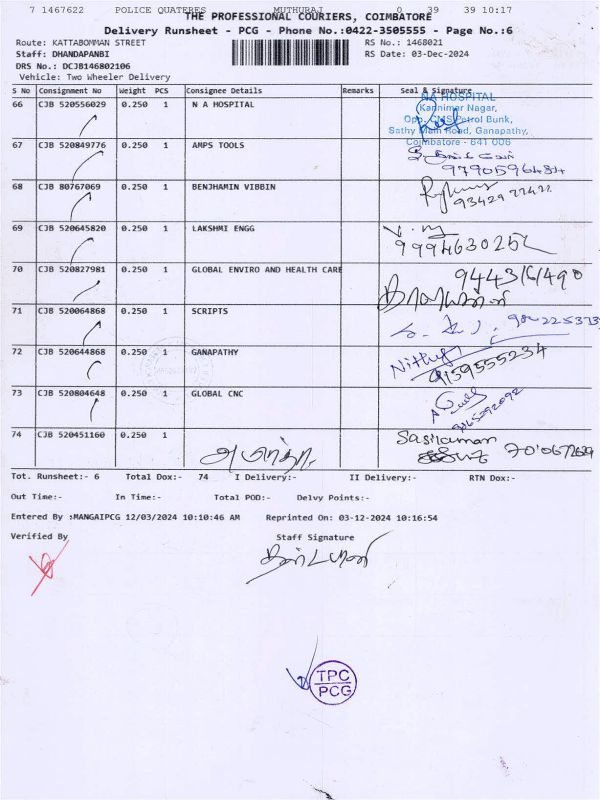 7 1467622 POLICE QUATERES MUTHURAJ 0 39 39 10:17
THE PROFESSIONAL COURIERS, COIMBATORE
Delivery Runsheet - PCG - Phone No.:0422-3505555 - Page No.:6
Route: KATTABOMMAN STREET RS No.: 1468021
Staff: DHANDAPANBI RS Date: 03-Dec-2024
DRS No.: DCJB146802106
Vehicle: Two Wheeler Delivery
S No Consignment No Weight PCS Consignee Details Remarks Seal & Signature
66 CJB 520556029 0.250 1 N A HOSPITAL
NA HOSPITAL
Kannimar Nagar,
Opp. CMS Petrol Bunk,
Sathy Main Road, Ganapathy,
Coimbatore - 641 006
67 CJB 520849776 0.250 1 AMPS TOOLS
9790596484
68 CJB 80767069 0.250 1 BENJHAMIN VIBBIN
69 CJB 520645820 0.250 1 LAKSHMI ENGG
70 CJB 520827981 0.250 1 GLOBAL ENVIRO AND HEALTH CARE
71 CJB 520064868 0.250 1 SCRIPTS
72 CJB 520644868 0.250 1 GANAPATHY
Nithya
9159555234
73 CJB 520804648 0.250 1 GLOBAL CNC
74 CJB 520451160 0.250 1
Tot. Runsheet:- 6 Total Dox:- 74 I Delivery:- II Delivery:- RTN Dox:-
Out Time:- In Time:- Total POD:- Delvy Points:-
Entered By :MANGAIPCG 12/03/2024 10:10:46 AM Reprinted On: 03-12-2024 10:16:54
Verified By Staff Signature
TPC
PCG